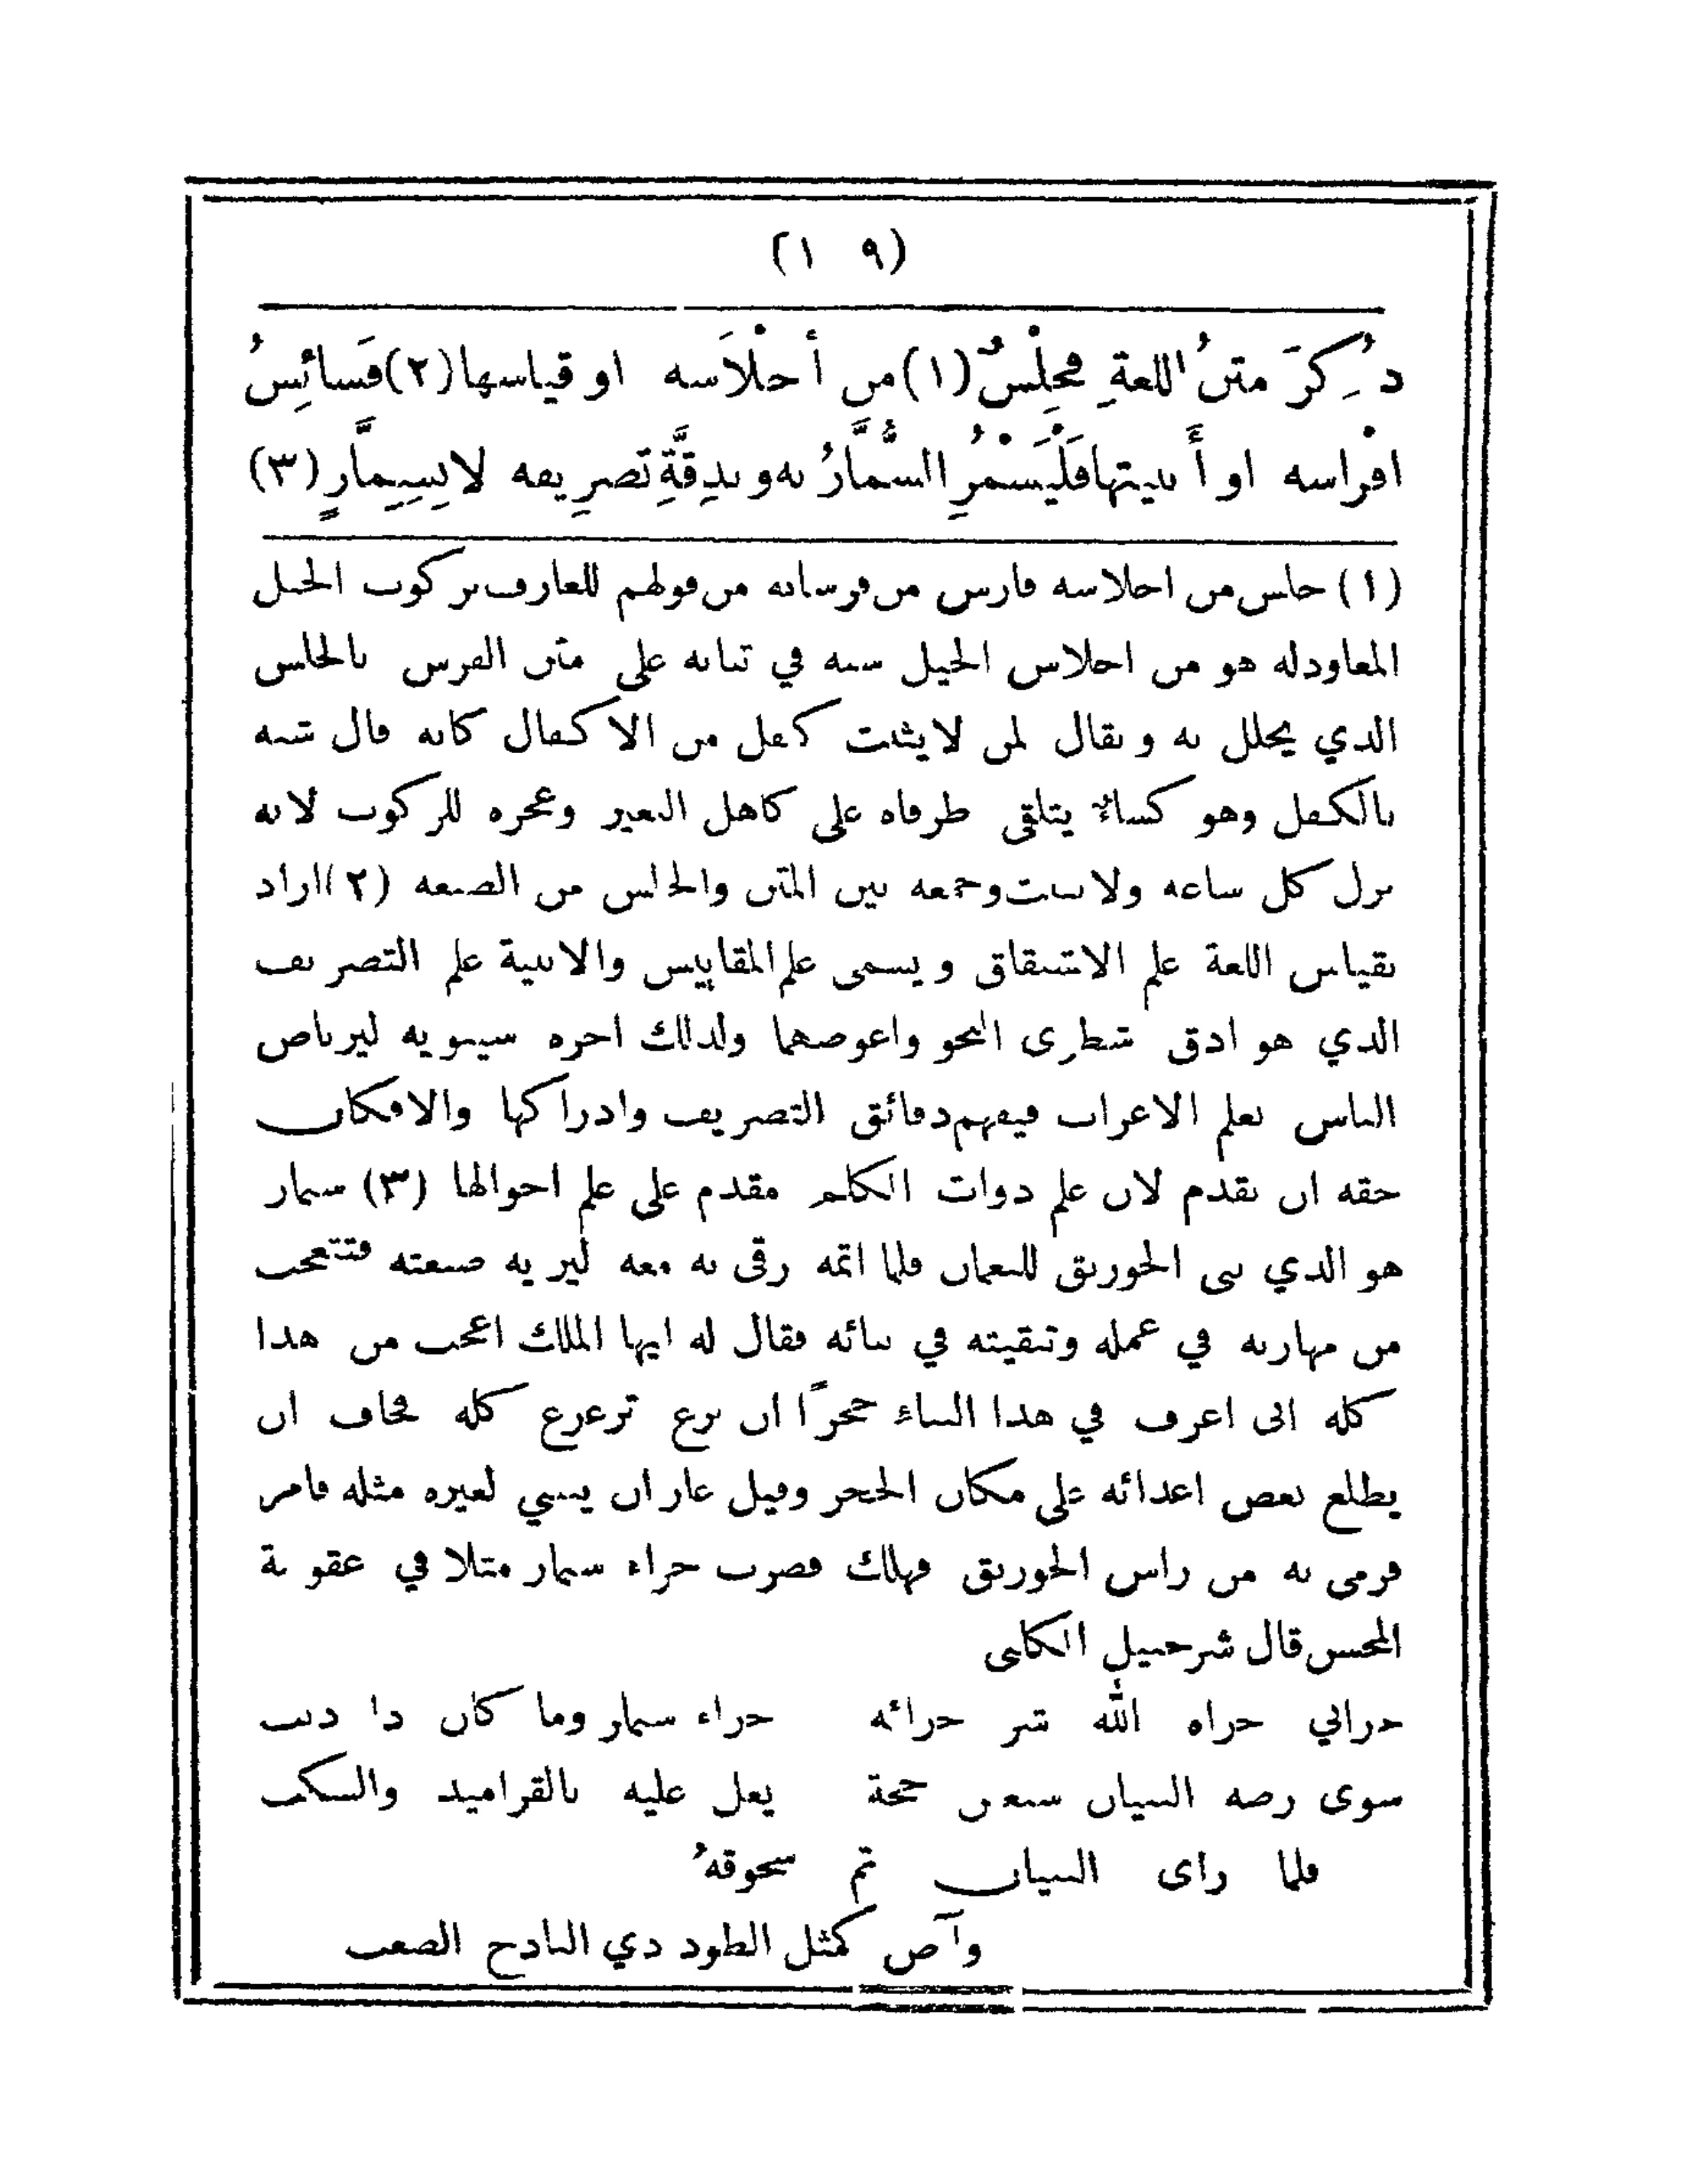 (١٠٩)
ذُكِرَ متنُ اللغةِ فحِلْسٌ (١) من أحْلَاسه او قياسها (٢) فَسائِسُ
افْراسه او أَبنيتها فلْيَسْمُرِ السُّمَّارُ به وبدِقَّةِ تصرِيفه لا بِسِنِمَّارٍ (٣)
(١) حلس من احلاسه فارس من فرسانه من قولهم للعارف بركوب الخيل
المعاود له هو من احلاس الخيل شبه في ثباته على متن الفرس بالحلس
الذي يجلل به ويقال لمن لا يثبت كفل من الاكفال كانه قال شبه
بالكفل وهو كساءٌ يتلقى طرفاه على كاهل البعير وعجزه للركوب لانه
يزل كل ساعه ولا يثبت وجمعه بين المتن والحلس من الصنعه (٢) اراد
بقياس اللغة علم الاشتقاق ويسمى علم المقاييس والابنية علم التصريف
الذي هو ادق شطرى النحو واعوصهما ولذلك اخره سيبويه ليرتاض
الناس بعلم الاعراب فيفهم دقائق التصريف وادراكها والا فكان
حقه ان يقدم لان علم ذوات الكلم مقدم على علم احوالها (٣) سنمار
هو الذي بنى الخورنق للنعمان فلما اتمه رقى به معه ليريه صنعته فتتعجب
من مهارته في عمله وتنقيته في بنائه فقال له ايها الملك اعجب من هذا
كله انى اعرف في هذا البناء حجرًا ان نزع تزعزع كله فخاف ان
يطلع بعض اعدائه على مكان الحجر وقيل غار ان يبنى لغيره مثله فامر
فرمى به من راس الخورنق فهلك فضرب جزاء سنمار مثلا في عقوبة
المحسن قال شرحبيل الكلبى
جزاني جزاه الله شر جزائه جزاء سنمار وما كان ذا ذنب
سوى رصه البنيان سبعين حجة يعل عليه بالقراميد والسكب
فلما راى البنيان تم سحوقهُ
وآض كمثل الطود ذي الباذخ الصعب